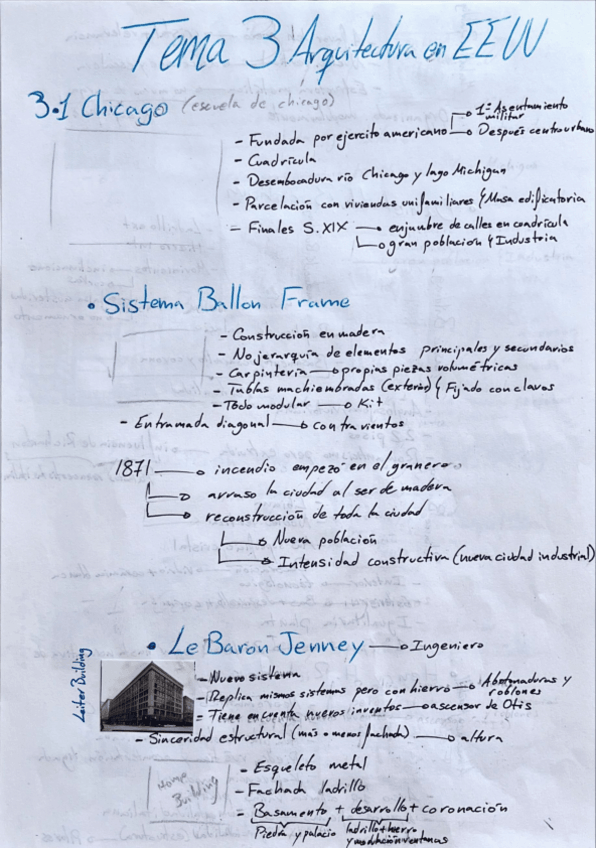 Tema 3 Arquitectura en EEUU
3.1 Chicago (escuela de chicago)
- Fundada por ejercito americano
1º Asentamiento militar
Después centro urbano
- Cuadrícula
- Desembocadura río Chicago y lago Michigan
- Parcelación con viviendas unifamiliares y Masa edificatoria
- Finales S.XIX
enjunbre de calles en cuadrícula
gran poblacion y Industria
• Sistema Ballon Frame
- Construcción en madera
- No jerarquía de elementos principales y secundarios
- Carpintería propias piezas volumétricas
- Tablas machiembradas (exterior) y Fijado con clavos
- Todo modular Kit
- Entramada diagonal contravientos
1871 incendio empezó en el granero
arraso la ciudad al ser de madera
reconstrucción de toda la ciudad
Nueva población
Intensidad constructiva (nueva ciudad industrial)
• Le Baron Jenney Ingeniero
Leiter Building
- Nuevo sistema
- Replica mismos sistemas pero con hierro
Abotonaduras y roblones
= Tiene en cuenta nuevos inventos ascensor de Otis
- Sinceridad estructural (más o menos fachada) altura
Home Building
- Esqueleto metal
- Fachada ladrillo
= Basamento + desarrollo + coronación
Piedra y palacio
ladrillo + hierro
y modulación ventanas